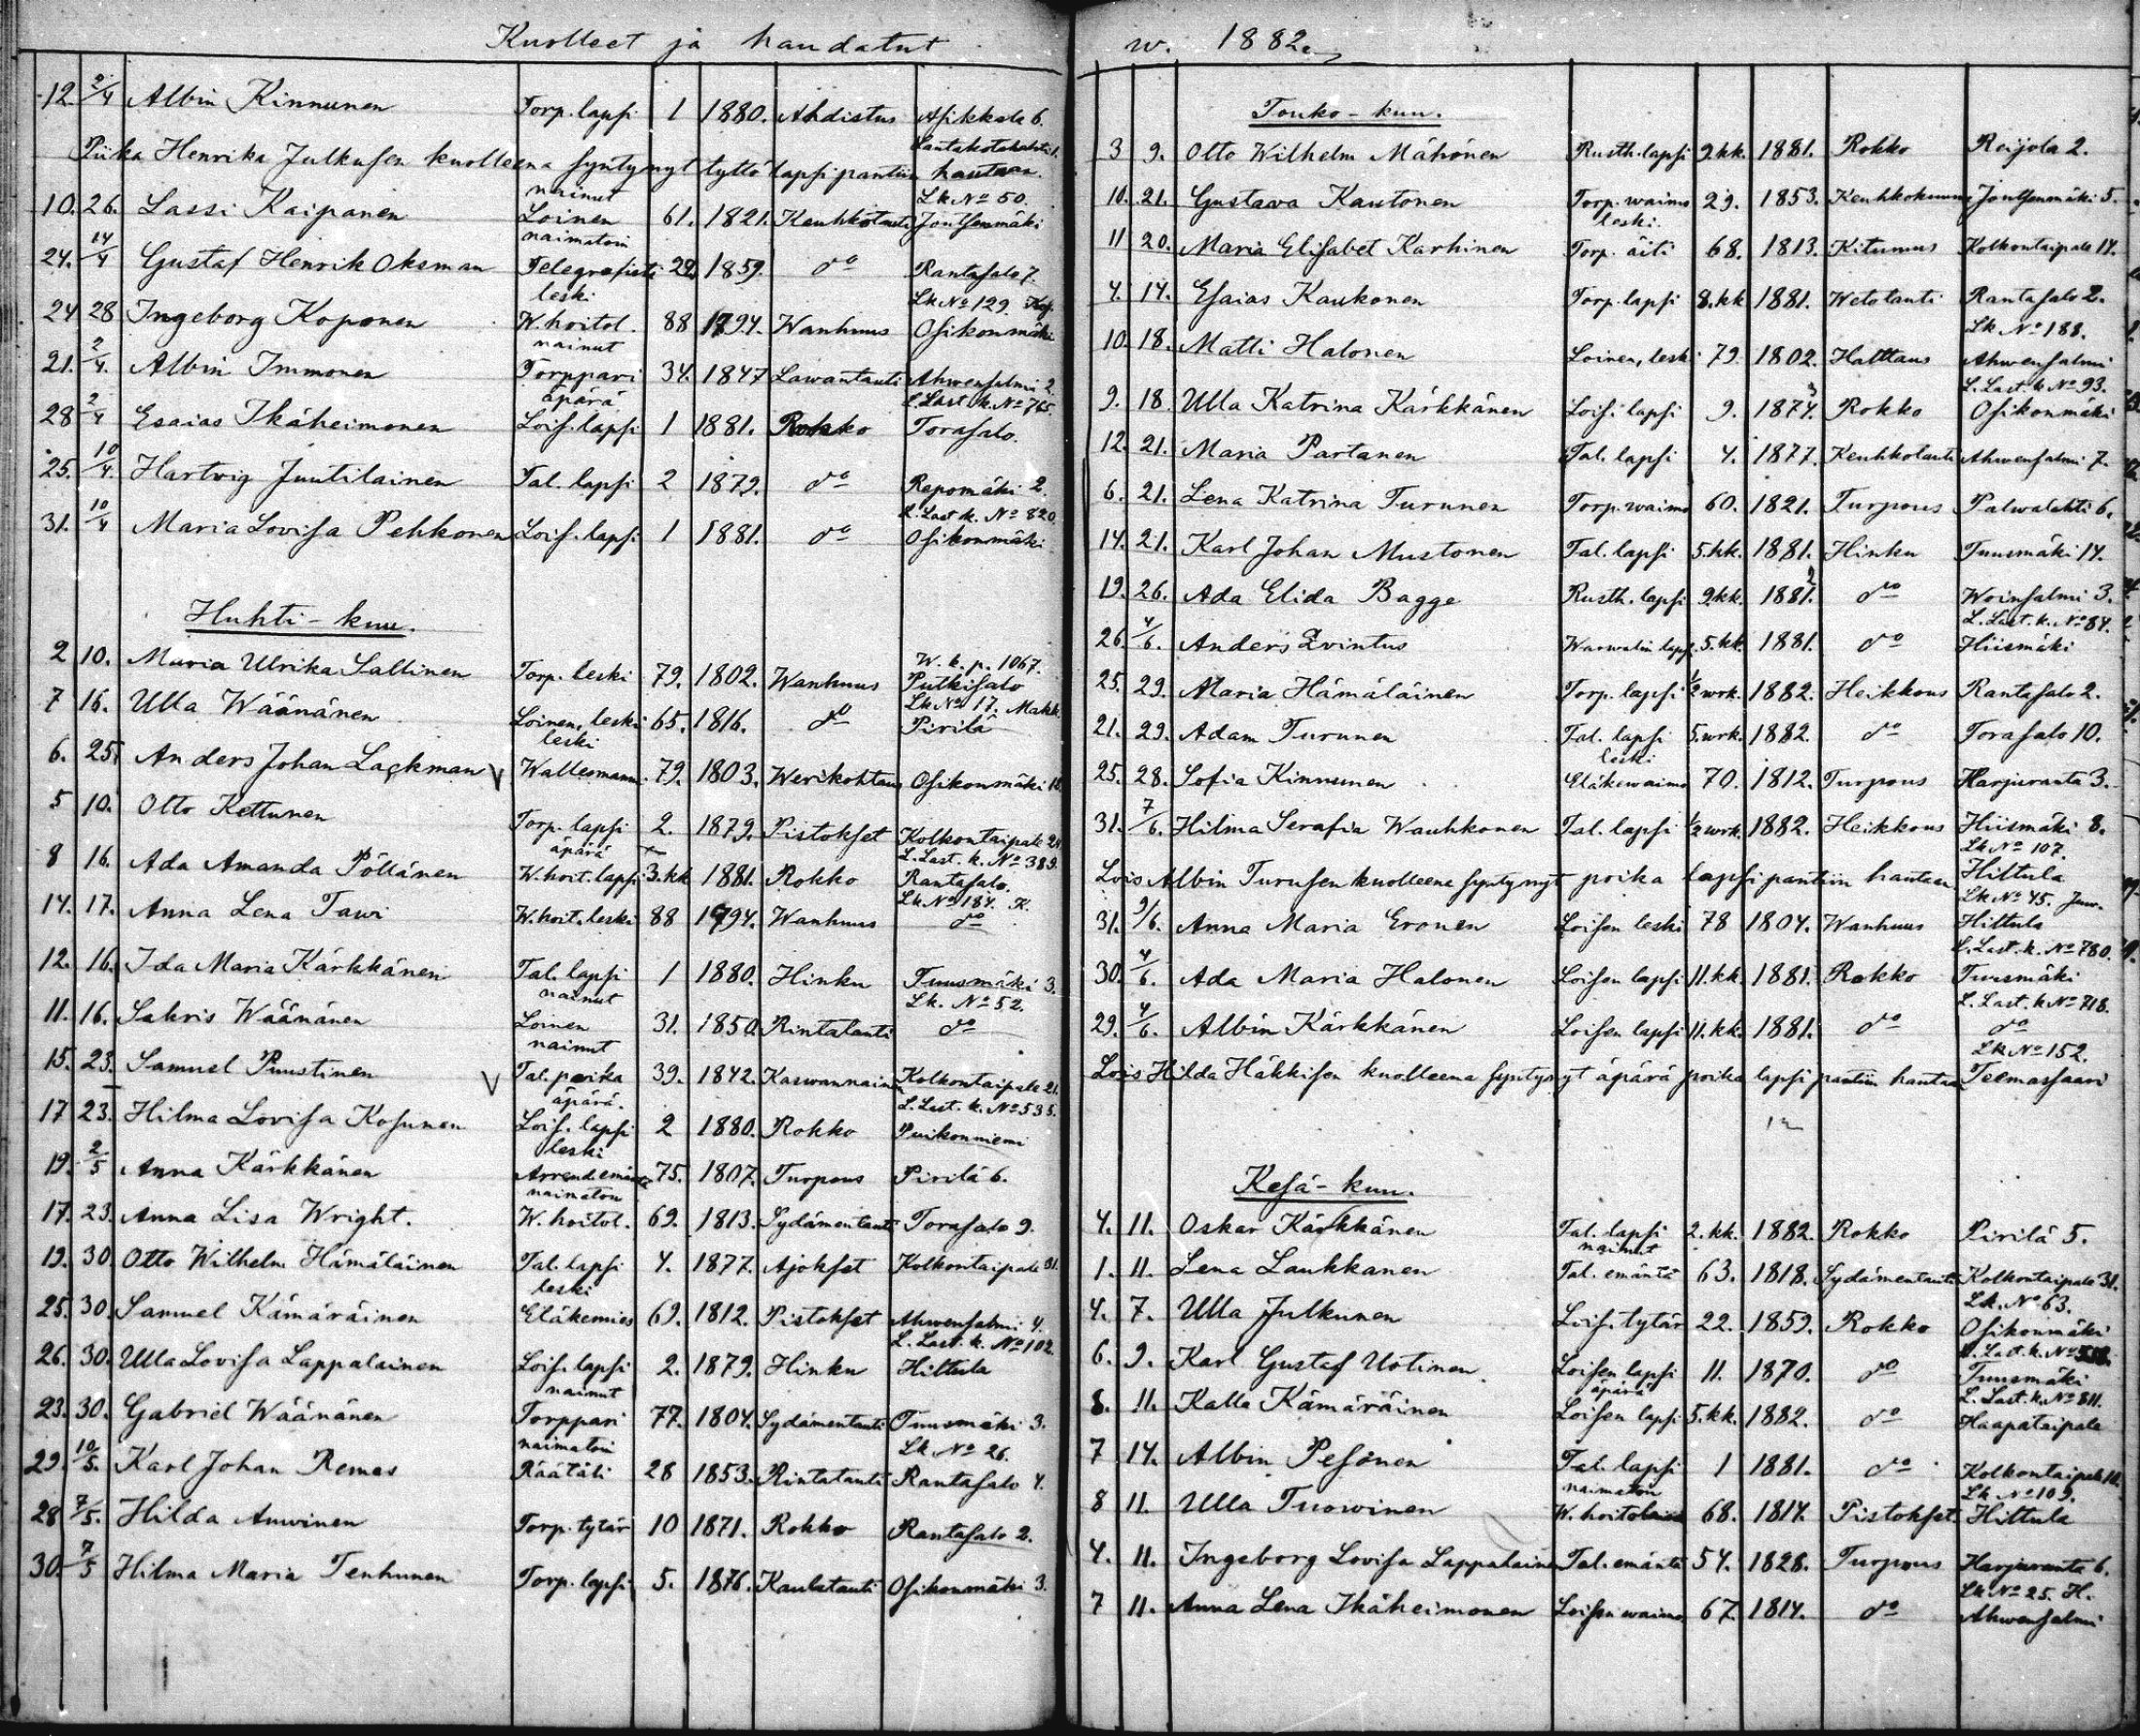 Kuolleet ja haudatut
12. 2/4 Albin Kinnunen Torp. lapsi 1 1880. Ahdistus Asikkala 6.
Piika Henrika Julkusen kuolleena syntynyt tyttö lapsi pantiin hautaan.
nainut Lk No 50.
10. 26. Lassi Kaipanen Loinen 61. 1821. Keuhkotauti Jontsenmäki
naimatoin
24. 14/4 Gustaf Henrik Oksman Telegrafisti 22. 1859. do Rantasalo 7.
leski Lk No 129. Kop.
24 28 Ingeborg Koponen W. hoitol. 88 1794. Wanhuus Osikonmäki
nainut
21. 2/4. Albin Immonen Torppari 34. 1847 Lawantauti Ahwensalmi 2.
äpärä L. Last. k. No 765.
28 2/4 Esaias Ikäheimonen Lois. lapsi 1 1881. Rokko Torasalo.
25. 10/4. Hartvig Juutilainen Tal. lapsi 2 1879. do Repomäki 2.
L. Last k. No 820.
31. 10/4 Maria Lovisa Pehkonen Lois. lapsi 1 1881. do Osikonmäki
Huhti-kuu.
W. k. p. 1067.
2 10. Maria Ulrika Sallinen Torp. leski 79. 1802. Wanhuus Putkisalo
Lk No 17. Makk.
7 16. Ulla Wäänänen Loinen, leski 65. 1816. do Pirilä
leski
6. 25. Anders Johan Lackman V Wallesmanni 79. 1803. Werikohtaus Osikonmäki 18.
5 10. Otto Kettunen Torp. lapsi 2. 1879. Pistokset Kolkontaipale 24
äpärä L. Last. k. No 389.
8 16. Ada Amanda Pöllänen W. hoit. lapsi 3. kk 1881. Rokko Rantasalo.
Lk. No 184. K.
14. 17. Anna Lena Tawi W. hoit. leski 88 1794. Wanhuus do
12. 16. Ida Maria Kärkkänen Tal. lapsi 1 1880. Hinku Tuusmäki 3.
nainut Lk. No 52.
11. 16. Sakris Wäänänen Loinen 31. 1850. Rintatauti do
nainut
15. 23. Samuel Puustinen V Tal. poika 39. 1842. Kaswannainen Kolkontaipale 21.
äpärä. L. Last. k. No 535.
17 23. Hilma Lovisa Kosunen Lois. lapsi 2 1880. Rokko Puikonniemi
leski
19. 2/5 Anna Kärkkänen Arrend. emäntä 75. 1807. Turpous Pirilä 6.
naimaton
17. 23. Anna Lisa Wright. W. hoitol. 69. 1813. Sydämentauti Torasalo 9.
19. 30. Otto Wilhelm Hämäläinen Tal. lapsi 4. 1877. Ajokset Kolkontaipale 31.
leski
25. 30. Samuel Kämäräinen Eläkemies 69. 1812. Pistokset Ahwensalmi 4.
L. Last. k. No 102
26. 30. Ulla Lovisa Lappalainen Lois. lapsi 2. 1879. Hinku Hiltula
nainut
23. 30. Gabriel Wäänänen Torppari 77. 1804. Sydämentauti Tuusmäki 3.
naimatoin Lk No 26.
29. 10/5. Karl Johan Remes Räätäli 28 1853. Rintatauti Rantasalo 4.
28 7/5. Hilda Auwinen Torp. tytär 10 1871. Rokko Rantasalo 2.
30. 7/5 Hilma Maria Tenhunen Torp. lapsi 5. 1876. Kaulatauti Osikonmäki 3.
w. 1882.
Touko-kuu.
3 9. Otto Wilhelm Mähönen Rusth. lapsi 9. kk. 1881. Rokko Reijola 2.
10. 21. Gustava Kautonen Torp. waimo 29. 1853. Keuhkokuume Jontsenmäki 5.
leski.
11 20. Maria Elisabet Karhinen Torp. äiti 68. 1813. Kitumus Kolkontaipale 14.
4. 14. Esaias Kaukonen Torp. lapsi 8. kk 1881. Wetotauti Rantasalo 2.
Lk No 188.
10. 18. Matti Halonen Loinen, leski 79. 1802. Halttaus Ahwensalmi
L. Last. k No 93.
9. 18. Ulla Katrina Kärkkänen Lois. lapsi 9. 1873. Rokko Osikonmäki
12. 21. Maria Partanen Tal. lapsi 4. 1877. Keuhkotauti Ahwensalmi 7.
6. 21. Lena Katrina Turunen Torp. waimo 60. 1821. Turpous Palwalahti 6.
14. 21. Karl Johan Mustonen Tal. lapsi 5. kk. 1881. Hinku Tuusmäki 14.
19. 26. Ada Elida Bagge Rusth. lapsi 9. kk. 1881. do Woinsalmi 3.
L. Last. k. No 84.
26. 4/6. Anders Qvintus Warwalin laps. 5. kk. 1881. do Hiismäki
25. 29. Maria Hämäläinen Torp. lapsi 1/2 wrk. 1882. Heikkous Rantasalo 2.
21. 29. Adam Turunen Tal. lapsi 5. wrk. 1882. do Torasalo 10.
leski
25. 28. Sofia Kinnunen Eläkewaimo 70. 1812. Turpous Harjuranta 3.
31. 7/6. Hilma Serafia Wauhkonen Tal. lapsi 1/2 wrk. 1882. Heikkous Hiismäki 8.
Lk No 107.
Lois Albin Turusen kuolleena syntynyt poika lapsi pantiin hautaan Hiltula
Lk No 45. Juw.
31. 9/6. Anna Maria Eronen Loisen leski 78 1804. Wanhuus Hiltula
L. Last. k. No 780.
30. 4/6. Ada Maria Halonen Loisen lapsi 11. kk. 1881. Rokko Tuusmäki
L. Last. k No 718.
29. 4/6. Albin Kärkkänen Loisen lapsi 11. kk. 1881. do do
Lk No 152.
Lois Hilda Häkkisen kuolleena syntynyt äpärä poika lapsi pantiin hautaan Teemassaari
Kesä-kuu.
4. 11. Oskar Kärkkänen Tal. lapsi 2. kk. 1882. Rokko Pirilä 5.
nainut
1. 11. Lena Laukkanen Tal. emäntä 63. 1818. Sydämentauti Kolkontaipale 31.
Lk. No 63.
4. 7. Ulla Julkunen Lois. tytär 22. 1859. Rokko Osikonmäki
6. 9. Karl Gustaf Uotinen. Loisen lapsi 11. 1870. do Tuusmäki
äpärä L. Last. k. No 811.
8. 11. Kalla Kämäräinen Loisen lapsi 5. kk. 1882. do Haapataipale
7 14. Albin Pesonen Tal. lapsi 1 1881. do Kolkontaipale 10.
naimaton Lk No 109.
8 11. Ulla Tuowinen W. hoitolais 68. 1814. Pistokset Hiltula
4. 11. Ingeborg Lovisa Lappalainen Tal. emäntä 54. 1828. Turpous Harjuranta 6.
Lk No 25. H.
7 11. Anna Lena Ikäheimonen Loisen waimo 67. 1814. do Ahwensalmi